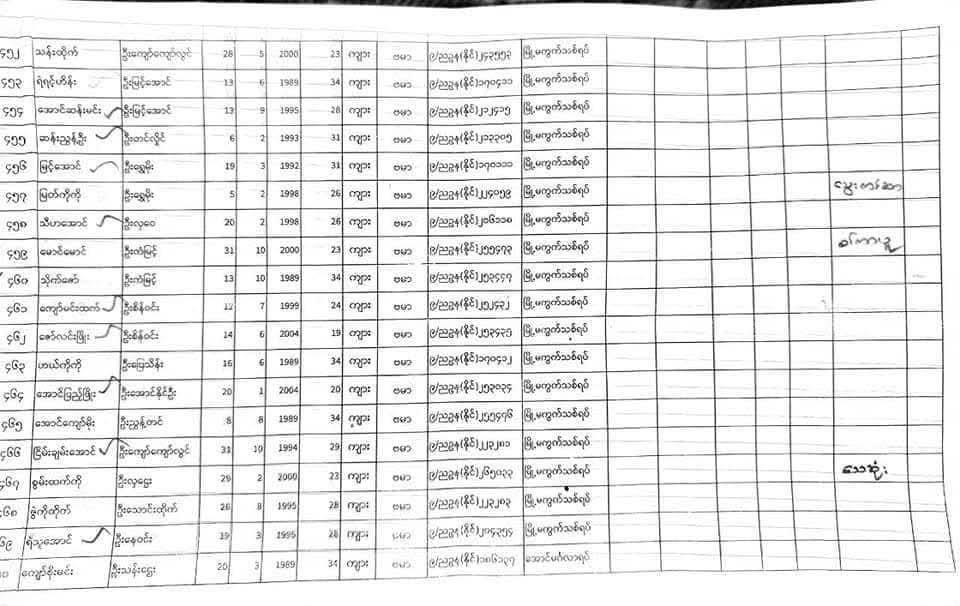 ၄၅၂ သန်းထိုက် ဦးကျော်ကျော်လွင် 28 5 2000 23 ကျား ဗမာ ၉/ညဥန(နိုင်)၂၄၃၅၅၃ မြို့မကွက်သစ်ရပ်
၄၅၃ ရဲရင့်ဟိန်း ဦးမြင့်အောင် 13 6 1989 34 ကျား ဗမာ ၉/ညဥန(နိုင်)၁၇၀၄၁၁ မြို့မကွက်သစ်ရပ်
၄၅၄ အောင်ဆန်းမင်း ဦးမြင့်အောင် 13 9 1995 28 ကျား ဗမာ ၉/ညဥန(နိုင်)၂၁၂၄၁၅ မြို့မကွက်သစ်ရပ်
၄၅၅ ဆန်းညွန့်ဦး ဦးတင်လှိုင် 6 2 1993 31 ကျား ဗမာ ၉/ညဥန(နိုင်)၂၁၃၃၀၅ မြို့မကွက်သစ်ရပ်
၄၅၆ မြင့်အောင် ဦးရွှေမိုး 19 3 1992 31 ကျား ဗမာ ၉/ညဥန(နိုင်)၁၇၀၁၁၁ မြို့မကွက်သစ်ရပ်
၄၅၇ မြတ်ကိုကို ဦးရွှေမိုး 5 2 1998 26 ကျား ဗမာ ၉/ညဥန(နိုင်)၂၂၄၀၅၉ မြို့မကွက်သစ်ရပ် မွေးစာရင်း
၄၅၈ သီဟအောင် ဦးလှဝေ 20 2 1998 26 ကျား ဗမာ ၉/ညဥန(နိုင်)၂၀၆၁၁၈ မြို့မကွက်သစ်ရပ်
၄၅၉ မောင်မောင် ဦးကံမြင့် 31 10 2000 23 ကျား ဗမာ ၉/ညဥန(နိုင်)၂၅၅၄၇၃ မြို့မကွက်သစ်ရပ်
၄၆၀ သိုက်ဇော် ဦးကံမြင့် 13 10 1989 34 ကျား ဗမာ ၉/ညဥန(နိုင်)၂၅၃၄၄၇ မြို့မကွက်သစ်ရပ်
၄၆၁ ကျော်မင်းထက် ဦးစိန်ဝင်း 12 7 1999 24 ကျား ဗမာ ၉/ညဥန(နိုင်)၂၅၂၄၃၂ မြို့မကွက်သစ်ရပ်
၄၆၂ ဇော်လင်းဖြိုး ဦးစိန်ဝင်း 14 6 2004 19 ကျား ဗမာ ၉/ညဥန(နိုင်)၂၅၃၄၃၅ မြို့မကွက်သစ်ရပ်
၄၆၃ ဟယ်ကိုကို ဦးဖြေသိန်း 16 6 1989 34 ကျား ဗမာ ၉/ညဥန(နိုင်)၁၇၀၄၁၂ မြို့မကွက်သစ်ရပ်
၄၆၄ အောင်ပြည့်ဖြိုး ဦးအောင်နိုင်ဦး 20 1 2004 20 ကျား ဗမာ ၉/ညဥန(နိုင်)၂၅၃၀၃၄ မြို့မကွက်သစ်ရပ်
၄၆၅ အောင်ကျော်မိုး ဦးညွန့်တင် 8 8 1989 34 ကျား ဗမာ ၉/ညဥန(နိုင်)၂၅၅၄၇၆ မြို့မကွက်သစ်ရပ်
၄၆၆ ငြိမ်းချမ်းအောင် ဦးကျော်ကျော်လွင် 31 10 1994 29 ကျား ဗမာ ၉/ညဥန(နိုင်)၂၂၃၂၈၁ မြို့မကွက်သစ်ရပ်
၄၆၇ စွမ်းထက်ကို ဦးလှငွေး 29 2 2000 23 ကျား ဗမာ ၉/ညဥန(နိုင်)၂၆၅၀၃၃ မြို့မကွက်သစ်ရပ် သေဆုံး
၆၈ ဖွဲကိုထိုက် ဦးသောင်းထိုက် 26 8 1995 28 ကျား ဗမာ ၉/ညဥန(နိုင်)၂၂၃၂၈၃ မြို့မကွက်သစ်ရပ်
၆၉ ရဲသူအောင် ဦးနေဝင်း 19 3 1995 28 ကျား ဗမာ ၉/ညဥန(နိုင်)၂၀၄၃၅၄ မြို့မကွက်သစ်ရပ်
၀ ကျော်စိုးမင်း ဦးသန်းဌေး 20 3 1989 34 ကျား ဗမာ ၉/ညဥန(နိုင်)၁၈၆၁၃၇ အောင်မင်္ဂလာရပ်